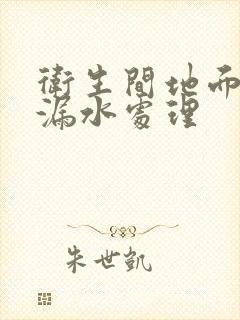 衛生間地面
漏水處理
朱世凱